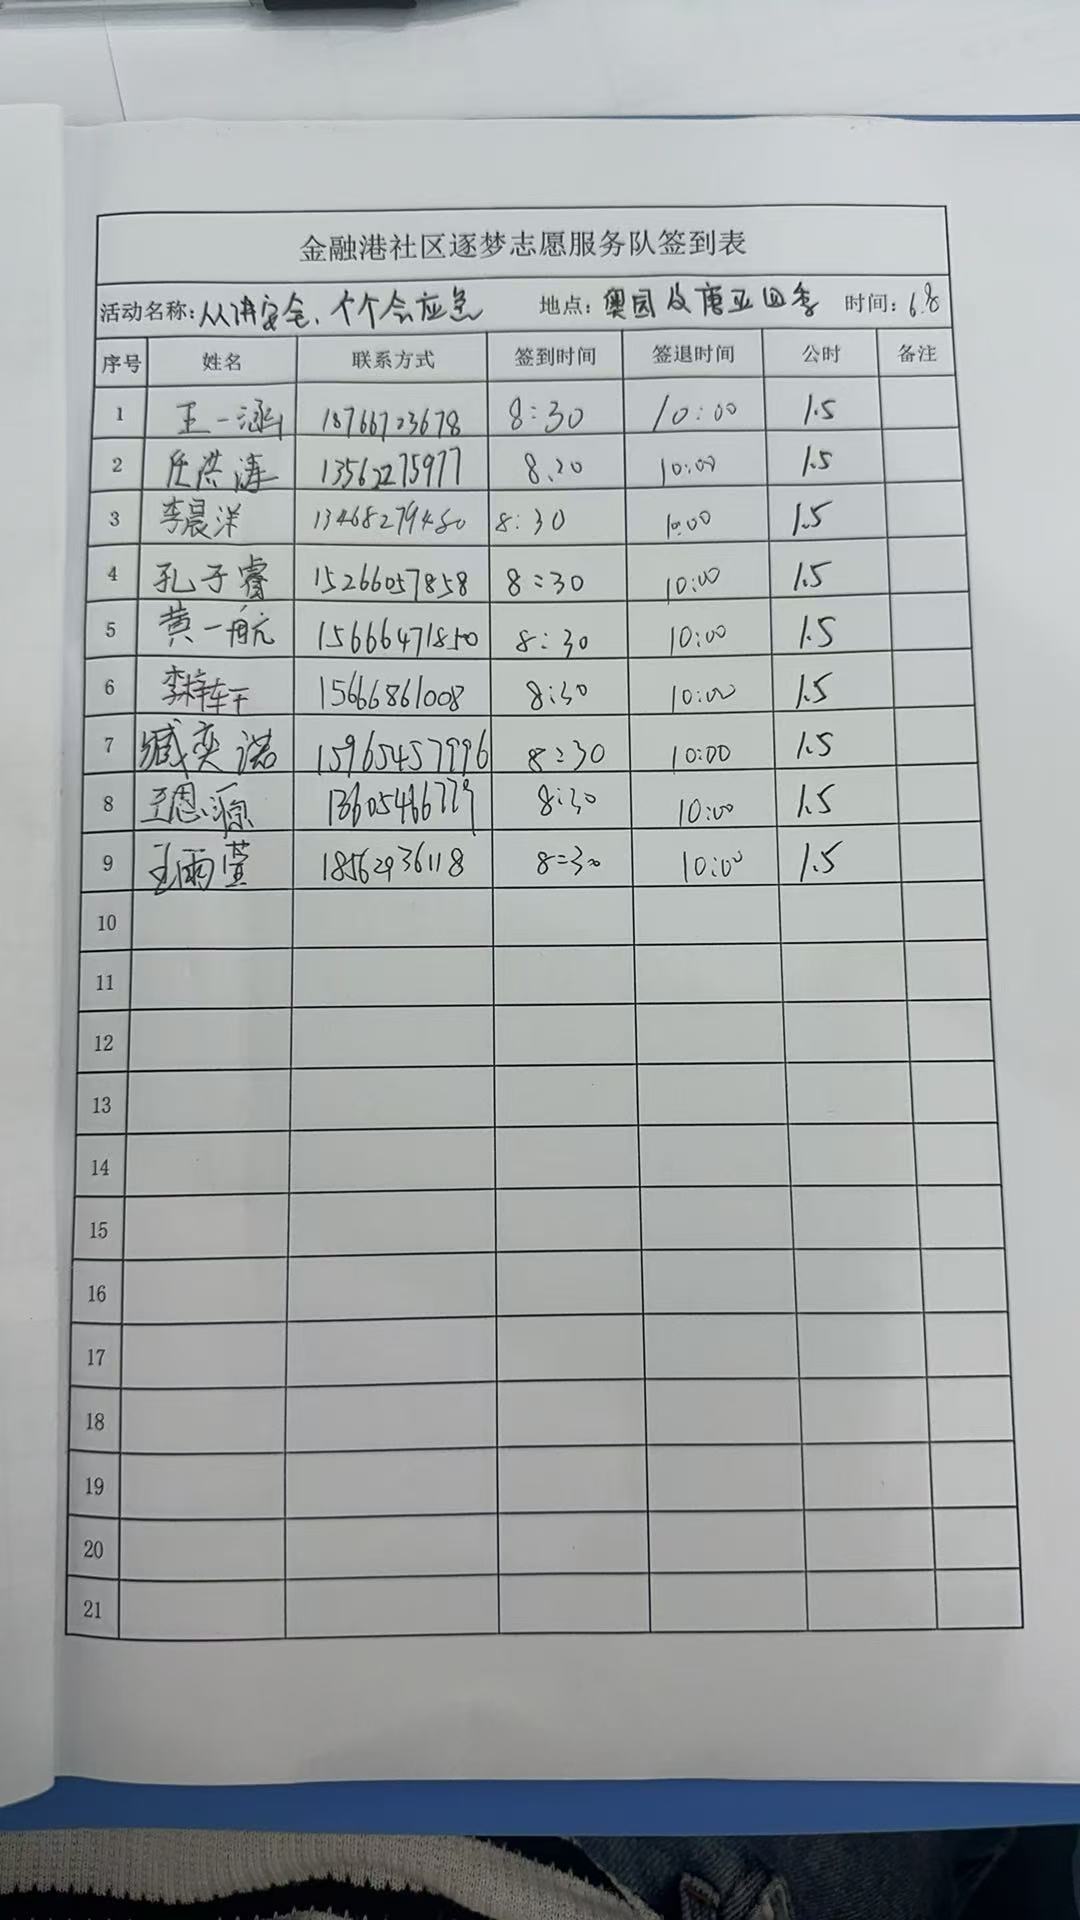 金融港社区逐梦志愿服务队签到表
活动名称:人人讲安全、个个会应急 地点:奥园及唐亚四季 时间:6.8
序号 姓名 联系方式 签到时间 签退时间 公时 备注
1 王一涵 18766723678 8:30 10:00 1.5
2 任洪涛 13562275977 8:20 10:00 1.5
3 李晨洋 13468279480 8:30 10:00 1.5
4 孔子睿 15266057858 8:30 10:00 1.5
5 黄一航 15666471850 8:30 10:00 1.5
6 15666861008 8:30 10:00 1.5
7 臧奕诺 15965457996 8:30 10:00 1.5
8 王思源 13605466779 8:30 10:00 1.5
9 王雨萱 18562936118 8:30 10:00 1.5
10
11
12
13
14
15
16
17
18
19
20
21